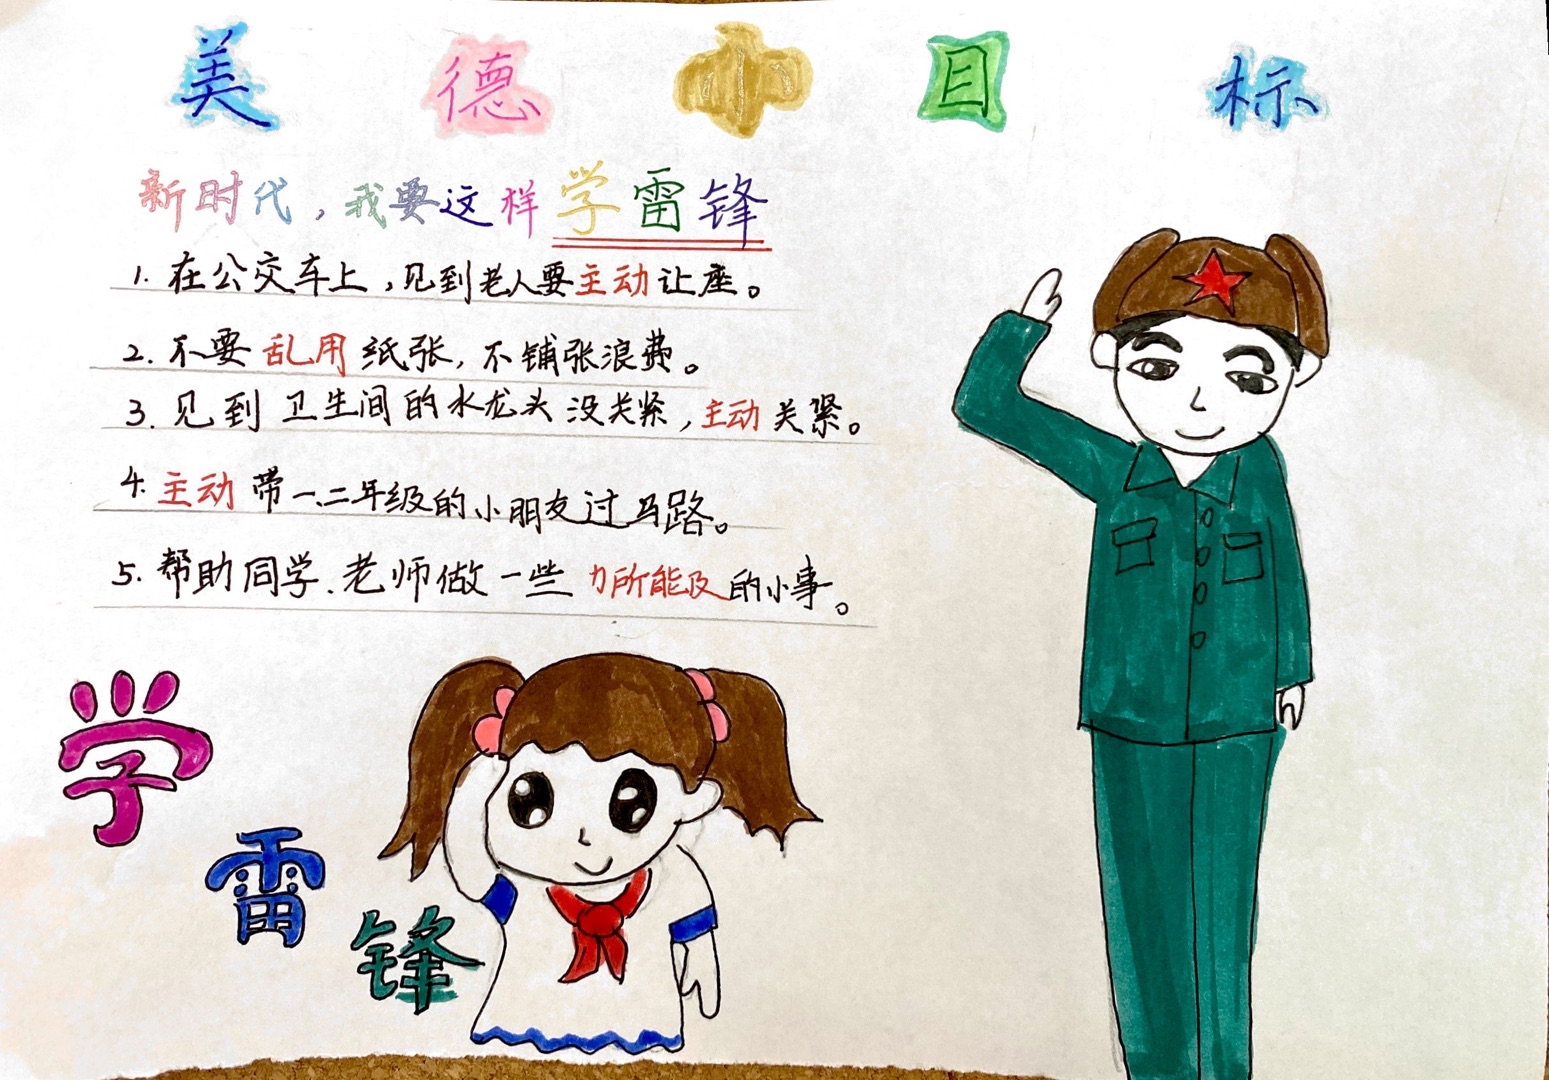 美德小目标
新时代，我要这样学雷锋
1. 在公交车上，见到老人要主动让座。
2. 不要乱用纸张，不铺张浪费。
3. 见到卫生间的水龙头没关紧，主动关紧。
4. 主动带一、二年级的小朋友过马路。
5. 帮助同学、老师做一些力所能及的小事。
学
雷
锋